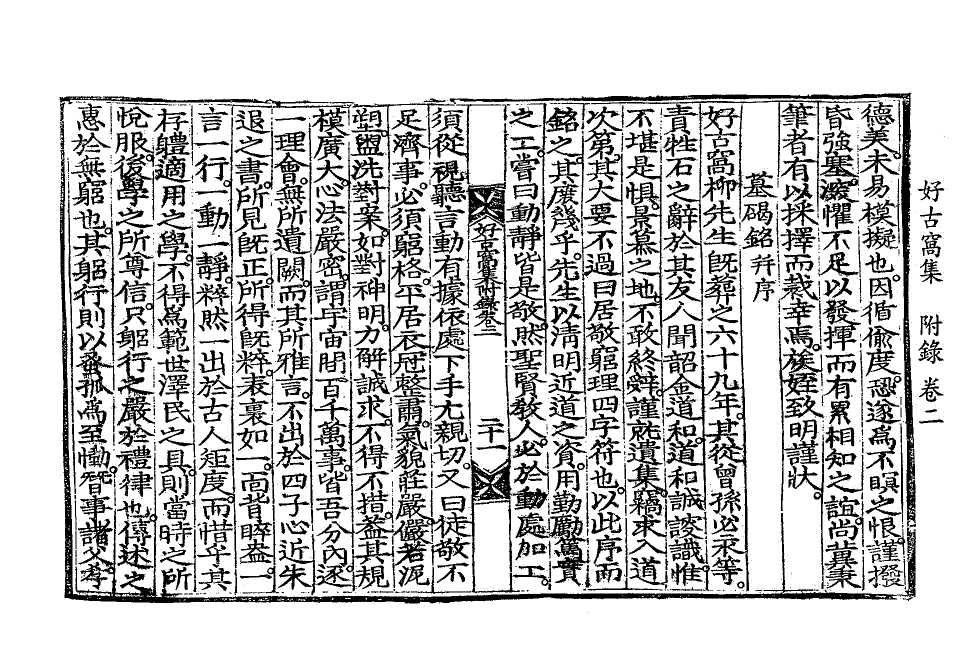 好古窩集　附錄　卷二
德美未易模擬也因循偸度恐遂爲不瞑之恨謹撥
昏強塞瀝懼不足以發揮而有累相知之誼尚冀秉
筆者有以採擇而裁幸焉族姪致明謹狀
墓碣銘幷序
好古窩柳先生旣葬之六十九年其從曾孫必永等
青牲石之辭於其友人聞韶金道和道和誠諉識惟
不堪是懼景慕之地不敢終辭謹就遺集竊求入道
次第其大要不過曰居敬窮理四字符也以此序而
銘之其庶幾乎先生以淸明近道之資用勤勵篤實
之工嘗曰動靜皆是敬然聖賢敎人必於動處加工
好古窩集附錄卷二
二十一
須從視聽言動有據依處下手尤親切又曰徒敬不
足濟事必須窮格平居衣冠整肅氣貌莊嚴儼若泥
塑盥洗對案如對神明力解誠求不得不措蓋其規
模廣大心法嚴密謂宇宙間百千萬事皆吾分內逐
一理會無所遺闕而其所雅言不出於四子心近朱
退之書所見旣正所得旣粹表裏如一面背睟盎一
言一行一動一靜粹然一出於古人矩度而惜乎其
存體適用之學不得爲範世澤民之具則當時之所
悅服後學之所尊信只躬行之嚴於禮律也傳述之
惠於無窮也其躬行則以蚤孤爲至慟旣事諸父孝